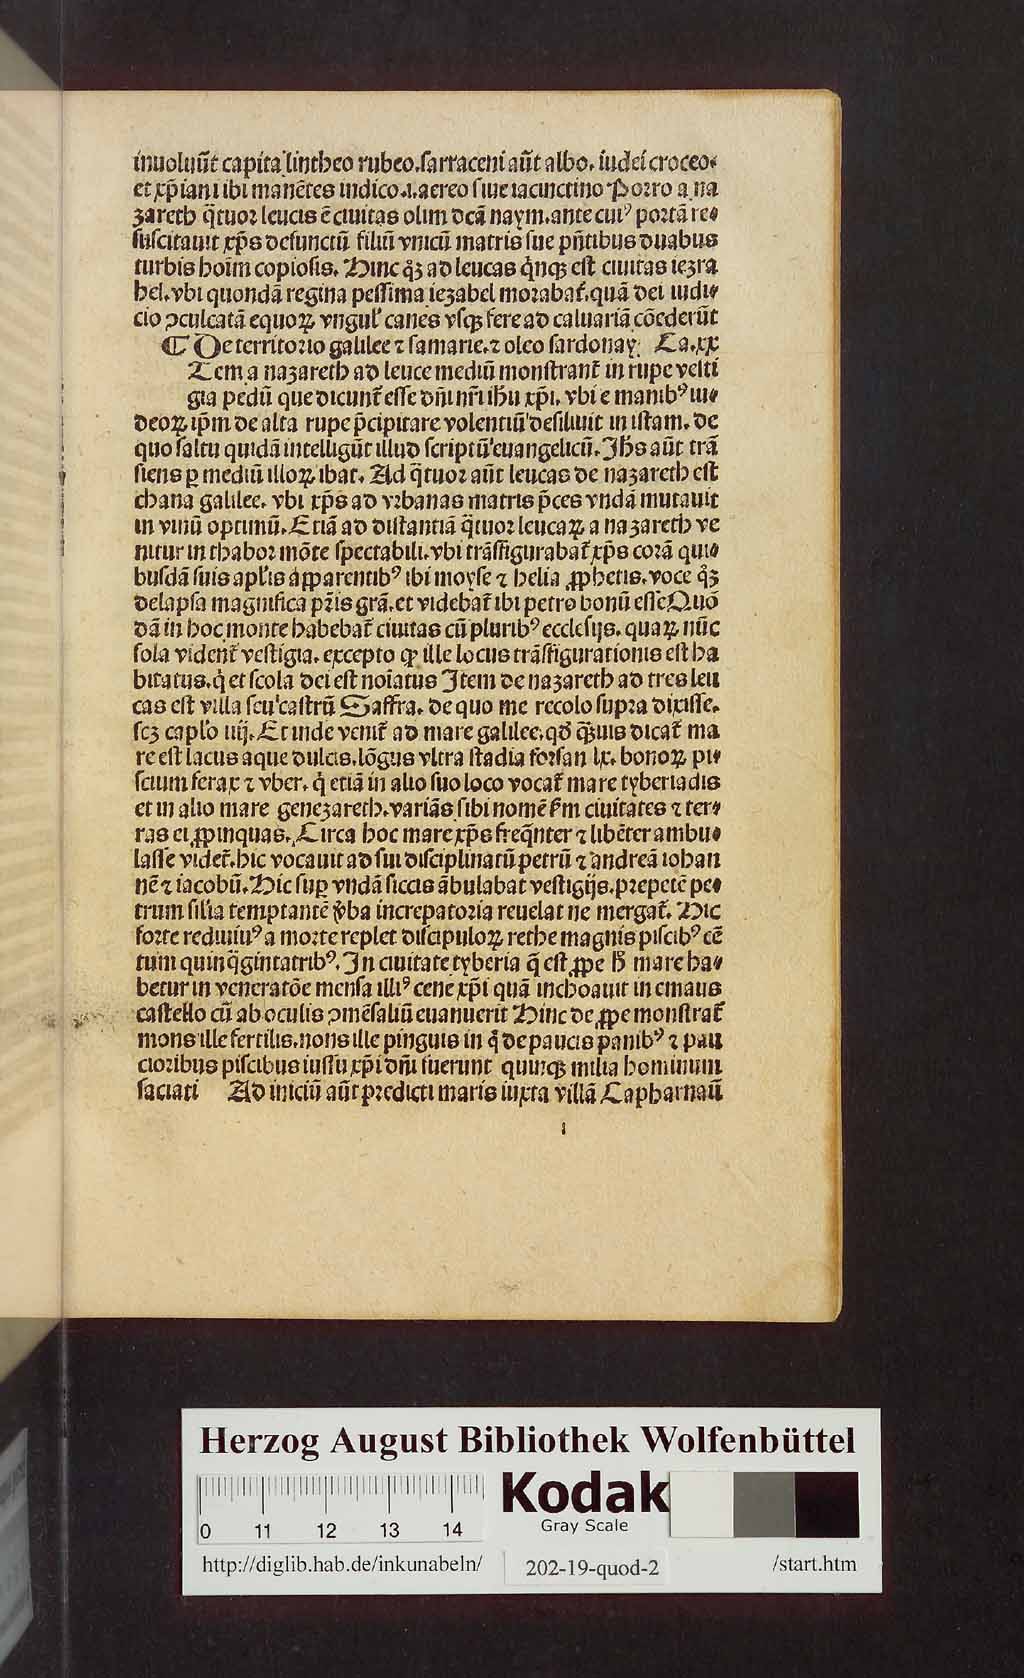 inuoluūt capita lintheo rubeo. sarraceni aūt albo. iudei croceo.
et xp̄iani ibi manētes indico .i. aereo siue iacinctino Porro a na
zareth q̄tuor leucis ē ciuitas olim dcā naym. ante cuiꝰ portā re⸗
suscitauit xp̄s defunctū filiū vnicū matris sue pn̄tibus duabus
turbis hoīm copiosis. Hinc qꝫ ad leucas q̇nqꝫ est ciuitas iezra
hel. vbi quondā regina pessima iezabel morabat̄. quā dei iudi⸗
cio ꝯculcatā equoꝝ vngul' canes vsqꝫ fere ad caluariā cōederūt
¶ De territorio galilee ⁊ samarie. ⁊ oleo sardonay. Ca. xx
Item a nazareth ad leuce mediū monstrant̄ in rupe vesti
gia pedū que dicunt̄ esse dn̄i nr̄i ih̄u xp̄i. vbi e manibꝰ iu⸗
deoꝝ ip̄m de alta rupe p̄cipitare volentiū desiliuit in istam. de
quo saltu quidā intelligūt illud scriptū euangelicū. Jh̄s aūt trā
siens ꝑ mediū illoꝝ ibat. Ad q̄tuor aūt leucas de nazareth est
chana galilee. vbi xp̄s ad vrbanas matris p̄ces vndā mutauit
in vinū optimū. Etiā ad distantiā q̄tuor leucaꝝ a nazareth ve
nitur in thabor mōte spectabili. vbi trāsfigurabat̄ xp̄s corā qui⸗
busdā suis apl'is apparentibꝰ ibi moyse ⁊ helia ꝓphetis. voce qꝫ
delapsa magnifica pr̄is grā. et videbat̄ ibi petro bonū esse Quō
dā in hoc monte habebat̄ ciuitas cū pluribꝰ ecclesijs. quaꝝ nūc
sola vident̄ vestigia. excepto ꝙ ille locus trāsfigurationis est ha
bitatus. q̇ et scola dei est noīatus Item de nazareth ad tres leu
cas est villa seu castrū Saffra. de quo me recolo supra dixisse.
scꝫ capl'o iiij. Et inde venit̄ ad mare galilee. qđ q̄uis dicat̄ ma
re est lacus aque dulcis. lōgus vltra stadia forsan lx. bonoꝝ pi⸗
scium ferax ⁊ vber. q̇ etiā in alio suo loco vocat̄ mare tyberiadis
et in alio mare genezareth. variās sibi nomē km̄ ciuitates ⁊ ter⸗
ras ei ꝓpinquas. Circa hoc mare xp̄s freq̄nter ⁊ libēter ambu⸗
lasse videt̄. hic vocauit ad sui disciplinatū petrū ⁊ andreā iohan
nē ⁊ iacobū. Hic suꝑ vndā siccis ābulabat vestigijs. prepetē pe⸗
trum silia temptantē v̄ba increpatoria reuelat ne mergat̄. Hic
forte rediuiuꝰ a morte replet discipuloꝝ rethe magnis piscibꝰ cē
tum quinq̄gintatribꝰ. In ciuitate tyberia q̄ est ꝓpe ħ mare ha⸗
betur in veneratōe mensa illiꝰ cene xp̄i quā inchoauit in emaus
castello cū ab oculis ꝯmēsaliū euanuerit Hinc de ꝓpe monstrat̄
mons ille fertilis. mons ille pinguis in q̇ de paucis panibꝰ ⁊ pau
cioribus piscibus iussu xp̄i dn̄i fuerunt quinqꝫ milia hominum
saciati Ad iniciū aūt predicti maris iuxta villā Capharnaū
i
Herzog August Bibliothek Wolfenbüttel
0 11 12 13 14
Kodak
Gray Scale
http://diglib.hab.de/inkunabeln/ 202-19-quod-2 /start.htm